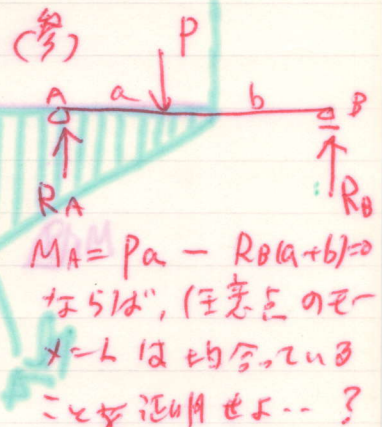 (参)
P
A a b B
R_A R_B
M_A = Pa - R_B(a+b)=0
ならば, 任意点のモー
メントは均合っている
ことを証明せよ‥?